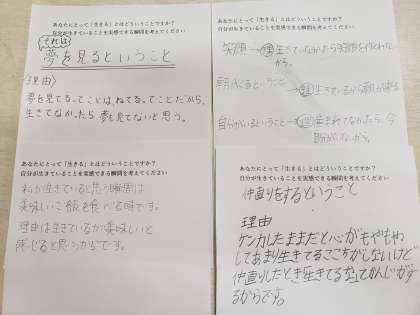 あなたにとって「生きる」とはどういうことですか?
自分が生きていることを実感できる瞬間を考えてください
それは
夢を見るということ
理由
夢を見てるってことは、ねてるってことだから、
生きてなかったら夢も見てないと思う。
あなたにとって「生きる」とはどういうことですか?
自分が生きていることを実感できる瞬間を考えてください
笑顔→理生きていなかったら笑顔を作れない
から。
朝がくるということ→理生きているから朝が来る
自分がいるということ→理産まれてなかったら、今
自分がいないから。
あなたにとって「生きる」とはどういうことですか?
自分が生きていることを実感できる瞬間を考えてください
私が生きていると思う瞬間は
美味しいご飯を食べる時です。
理由は生きているから美味しいと
感じると思うからです。
あなたにとって「生きる」とはどういうことですか?
自分が生きていることを実感できる瞬間を考えてください
仲直りをするということ
理由
ケンカしたままだと心がもやもや
してあまり生きてるここちがしないけど
仲直りしたとき生きてるなってかんじがす
るからです。